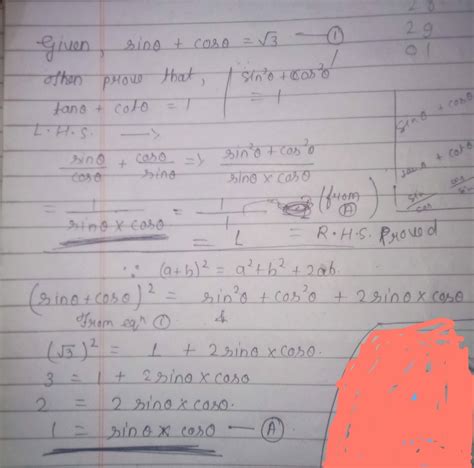 Given, sinθ + cosθ = √3 — ①
then prove that, sin²θ + cos²θ = 1
tanθ + cotθ = 1
L.H.S. →
sinθ/cosθ + cosθ/sinθ => sin²θ + cos²θ / sinθ × cosθ
= 1/sinθ × cosθ = 1/1 (from A)
= 1 = R.H.S. Proved
∵ (a+b)² = a² + b² + 2ab.
(sinθ + cosθ)² = sin²θ + cos²θ + 2sinθ × cosθ
from eqⁿ ①
(√3)² = 1 + 2sinθ × cosθ.
3 = 1 + 2sinθ × cosθ
2 = 2sinθ × cosθ.
1 = sinθ × cosθ — A
29
01
sinθ + cosθ
tanθ + cotθ
sin/cos